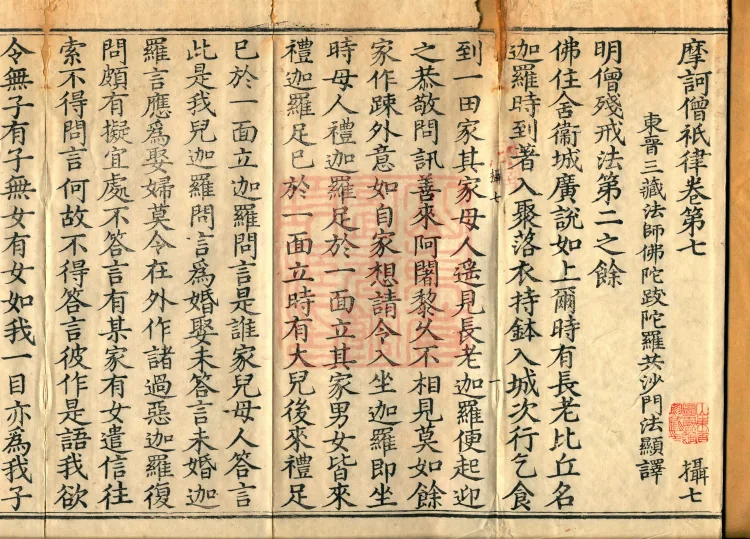 摩訶僧祇律卷第七 攝七
東晉三藏法師佛陀跋陀羅共沙門法顯譯
明僧殘戒法第二之餘
佛住舍衞城廣說如上爾時有長老比丘名
迦羅時到著入聚落衣持鉢入城次行乞食
攝七 一
到一田家其家母人遥見長老迦羅便起迎
之恭敬問訊善來阿闍黎久不相見莫如餘
家作踈外意如自家想請令入坐迦羅即坐
時母人禮迦羅足於一面立其家男女皆來
禮迦羅足已於一面立時有大兒後來禮足
已於一面立迦羅問言是誰家兒母人答言
此是我兒迦羅問言爲婚娶未答言未婚迦
羅言應爲娶婦莫令在外作諸過惡迦羅復
問頗有擬宜處不答言有某家有女遣信往
索不得問言何故不得答言彼作是語我欲
令無子有子無女有女如我一目亦為我子